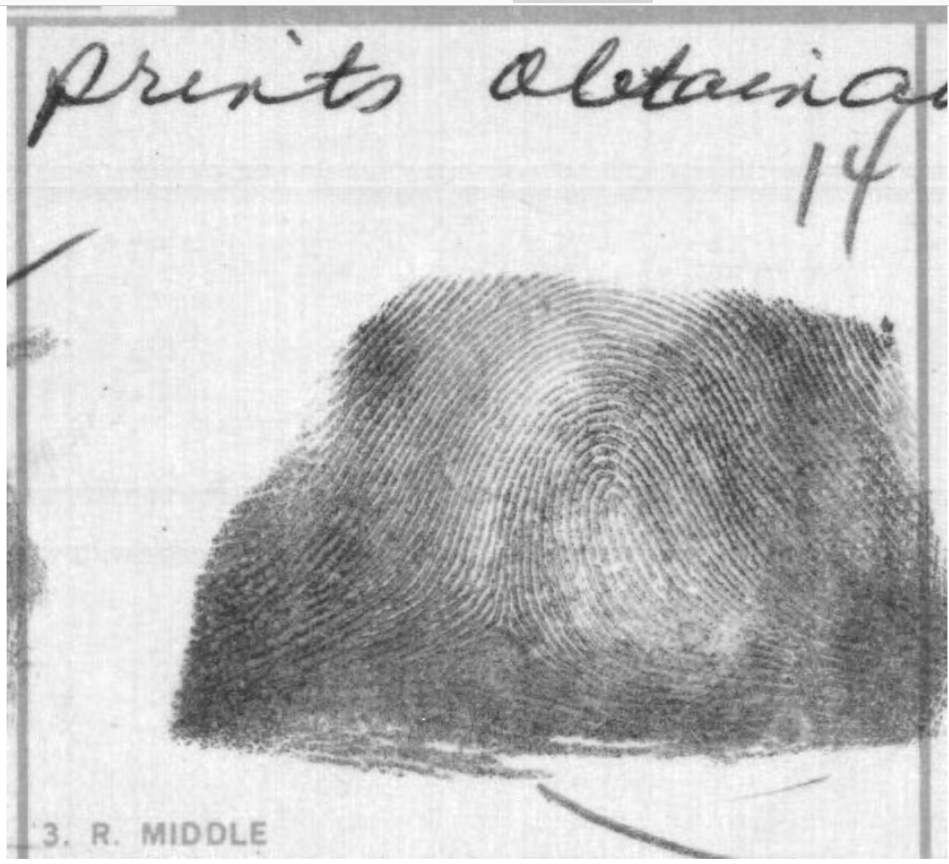 prints obtaina
14
3. R. MIDDLE